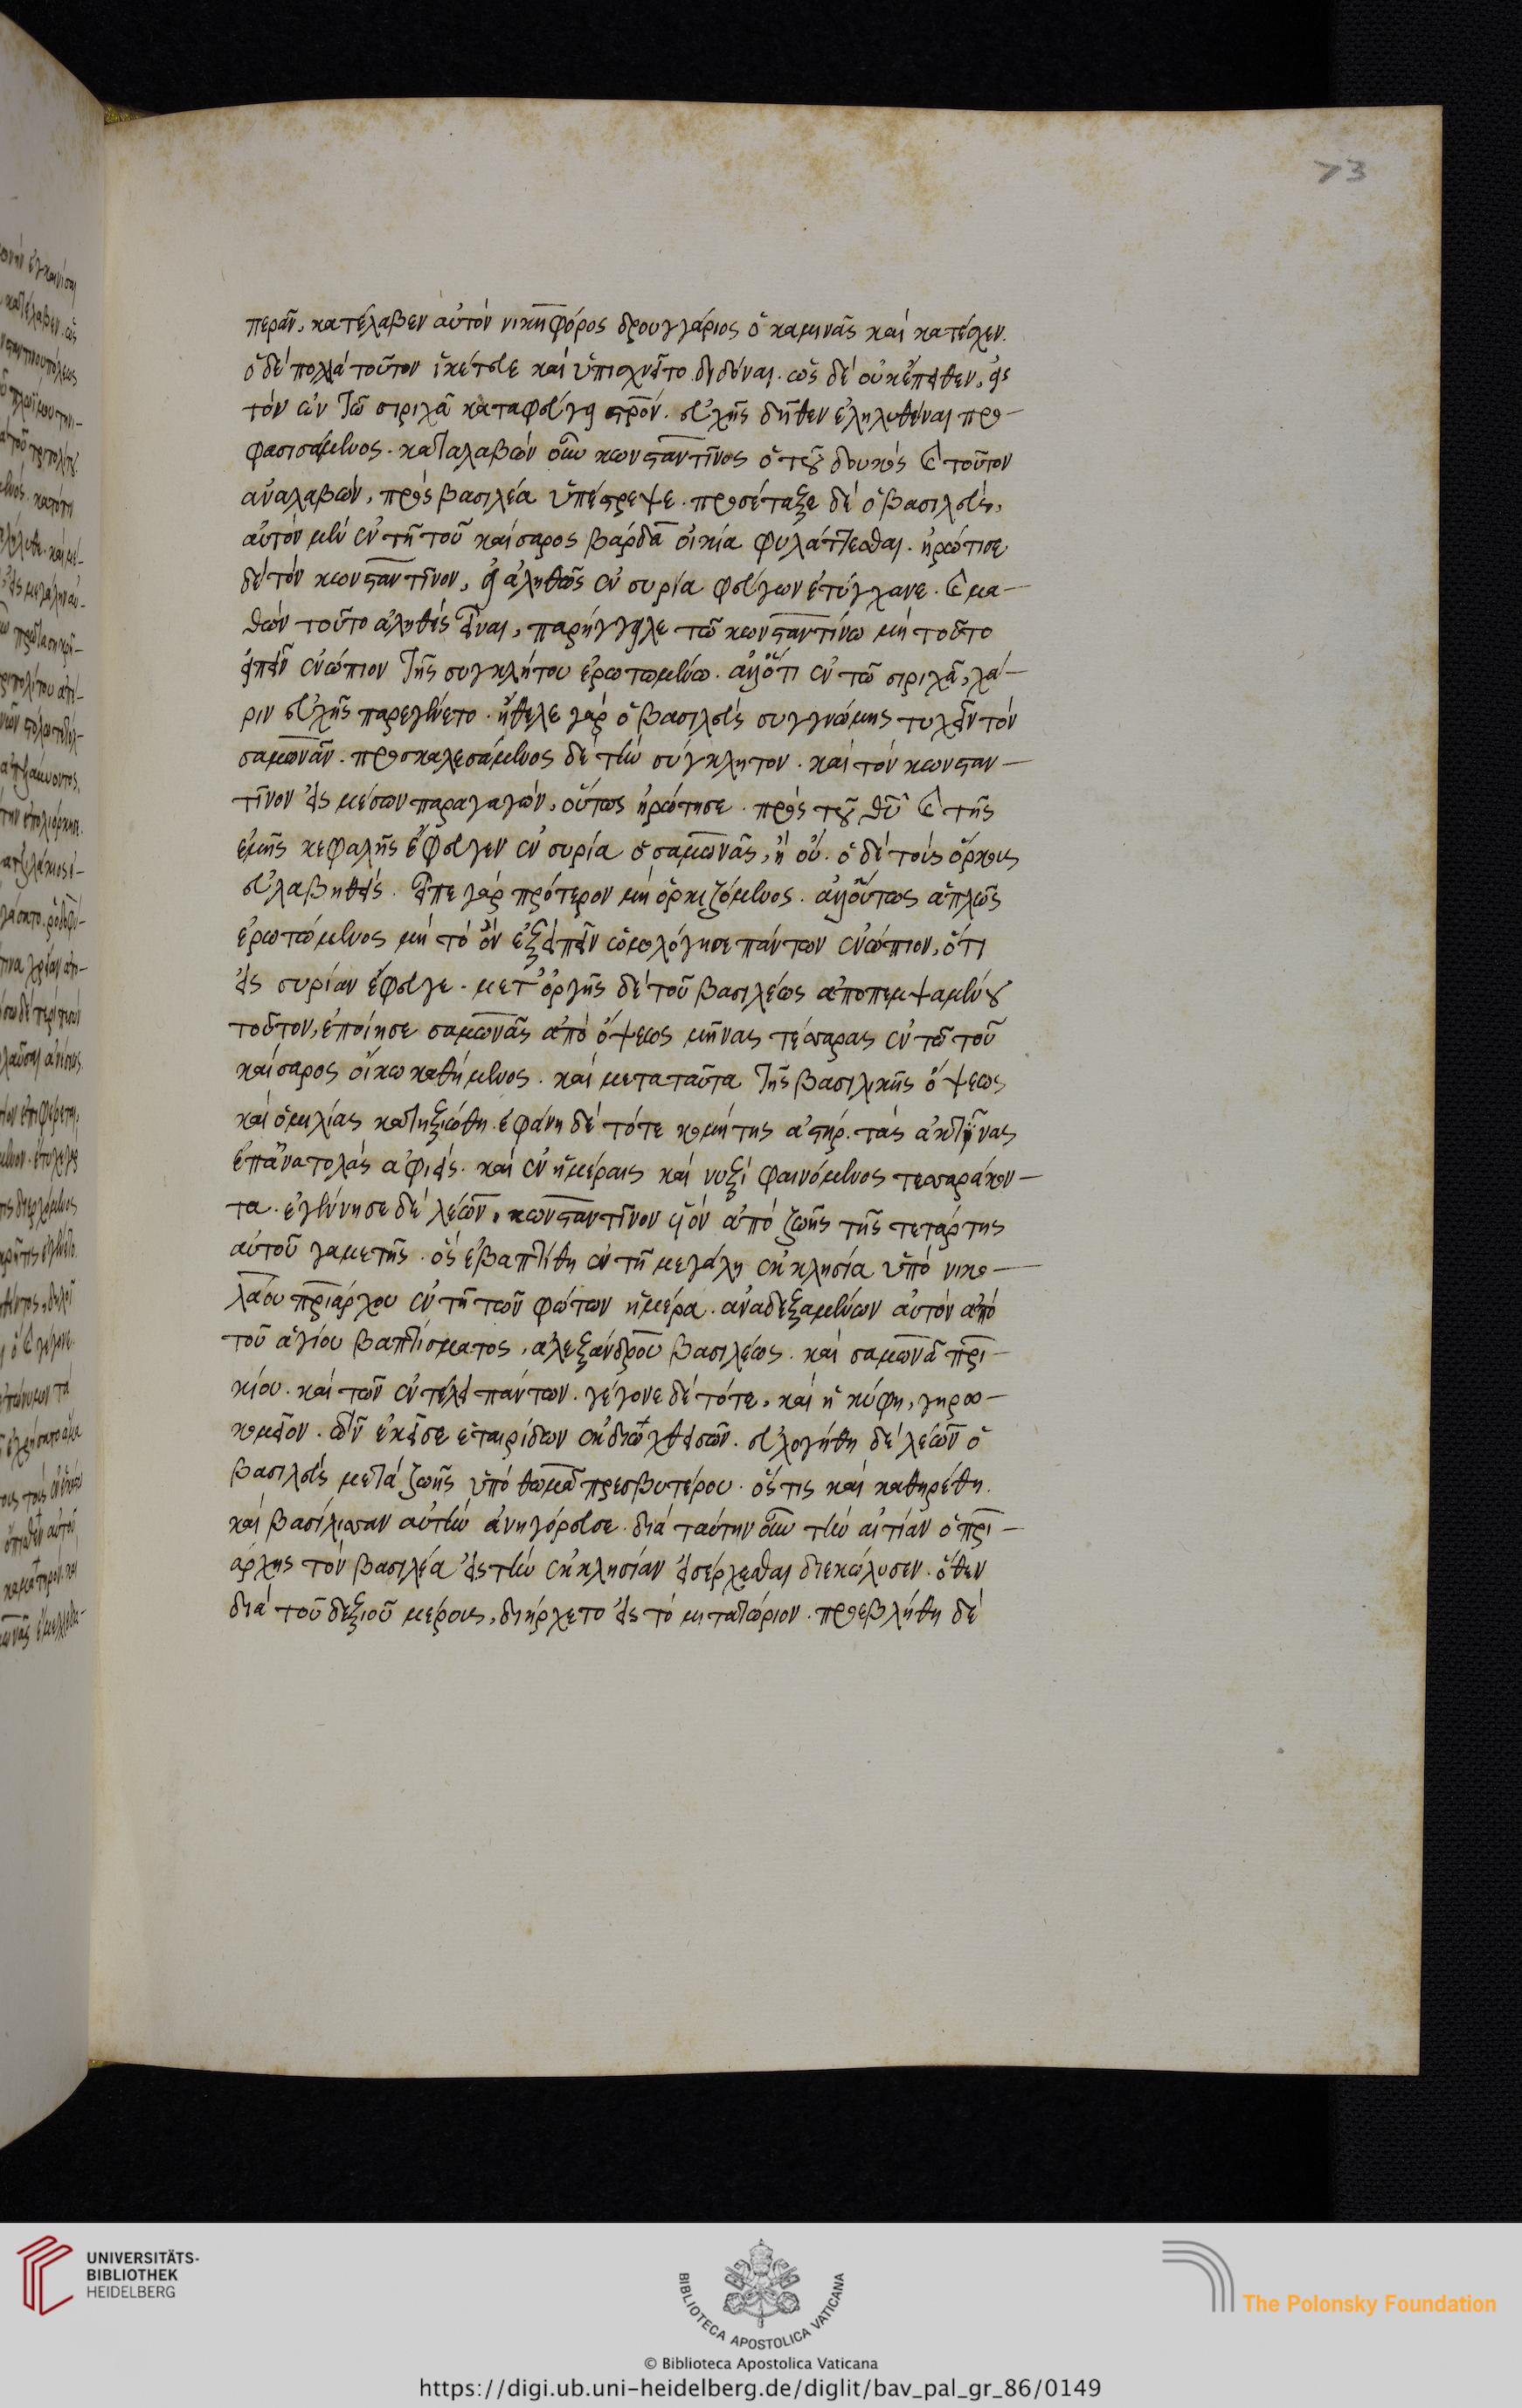 73
περᾶν, κατέλαβεν αὐτὸν νικηφόρος δρουγγάριος ὁ καμινᾶς καὶ κατέσχεν.
ὁ δὲ πολλὰ τοῦτον ἱκέτευε καὶ ὑπισχνεῖτο διδόναι. ὡς δὲ οὐκ ἔπειθεν, εἰς
τὸν ἐν τῶ σιριχᾶ καταφεύγει στρον. εὐχῆς δῆθεν ἐληλυθέναι προ-
φασισάμενος. καταλαβὼν οὖν κωνσταντῖνος ὁ τοῦ δουκὸς καὶ τοῦτον
ἀναλαβὼν, πρὸς βασιλέα ὑπέστρεψε. προσέταξε δὲ ὁ βασιλεὺς,
αὐτὸν μὲν ἐν τῆ τοῦ καίσαρος βάρδα οἰκία φυλάττεσθαι. ἠρώτισε
δὲ τὸν κωνσταντῖνον, εἰ ἀληθῶς ἐν συρία φεύγων ἐτύγχανε. καὶ μα-
θὼν τοῦτο ἀληθὲς εἶναι, παρήγγειλε τῶ κωνσταντίνω μὴ τοῦτο
εἰπεῖν ἐνώπιον τῆς συγκλήτου ἐρωτωμένω. ἀλλ' ὅτι ἐν τῶ σιριχᾶ, χά-
ριν εὐχῆς παρεγένετο. ἤθελε γὰρ ὁ βασιλεὺς συγγνώμης τυχεῖν τὸν
σαμωνᾶν. προσκαλεσάμενος δὲ τὴν σύγκλητον. καὶ τὸν κωνσταν-
τῖνον εἰς μέσων παραγαγὼν, οὕτως ἠρώτησε. πρὸς τοῦ θυ καὶ τῆς
ἐμῆς κεφαλῆς ἔφευγεν ἐν συρία ὁ σαμωνᾶς, ἢ οὔ. ὁ δὲ τοὺς ὅρκους
εὐλαβηθεὶς. εἶπε γὰρ πρότερον μὴ ὁρκιζόμενος. ἀλλ' οὕτως ἁπλῶς
ἐρωτώμενος μὴ τὸ ὂν ἐξειπεῖν ὡμολόγησε πάντων ἐνώπιον, ὅτι
εἰς συρίαν ἔφευγε. μετ' ὀργῆς δὲ τοῦ βασιλέως ἀποπεμψαμένου
τοῦτον, ἐποίησε σαμωνᾶς ἀπὸ ὄψεως μῆνας τέσσαρας ἐν τῶ τοῦ
καίσαρος οἴκω καθήμενος. καὶ μετα ταῦτα τῆς βασιλικῆς ὄψεως
καὶ ὁμιλίας κατηξιώθη. ἐφάνη δὲ τότε κομήτης ἀστὴρ. τὰς ἀκτῖνας
ἐπ' ἀνατολὰς ἀφιεὶς. καὶ ἐν ἡμέραις καὶ νυξὶ φαινόμενος τεσσαράκον-
τα. ἐγέννησε δὲ λέων, κωνσταντῖνον υἱὸν ἀπὸ ζωῆς τῆς τετάρτης
αὐτοῦ γαμετῆς. ὃς ἐβαπτίθη ἐν τῆ μεγάλη ἐκκλησία ὑπὸ νικο-
λάου πριάρχου ἐν τῆ τῶν φώτων ἡμέρα. ἀναδεξαμένων αὐτὸν ἀπὸ
τοῦ ἁγίου βαπτίσματος, ἀλεξάνδρου βασιλέως. καὶ σαμωνᾶ πρι-
κίου. καὶ τῶν ἐν τέλει πάντων. γέγονε δὲ τότε, καὶ ἡ κύφη, γηρο-
κομεῖον. τῶν ἐκεῖσε ἑταιρίδων ἐκδιωχθεισῶν. εὐλογήθη δὲ λέων ὁ
βασιλεὺς μετὰ ζωῆς ὑπὸ θωμᾶ πρεσβυτέρου. ὅς τις καὶ καθηρέθη.
καὶ βασίλισσαν αὐτὴν ἀνηγόρευσε. διὰ ταύτην οὖν τὴν αἰτίαν ὁ πρι-
άρχης τὸν βασιλέα εἰς τὴν ἐκκλησίαν εἰσέρχεσθαι διεκώλυσεν. ὅθεν
διὰ τοῦ δεξιοῦ μέρους, διήρχετο εἰς τὸ μιτατώριον. προεβλήθη δὲ
UNIVERSITÄTS-
BIBLIOTHEK
HEIDELBERG
BIBLIOTECA APOSTOLICA VATICANA
The Polonsky Foundation
© Biblioteca Apostolica Vaticana
https://digi.ub.uni-heidelberg.de/diglit/bav_pal_gr_86/0149